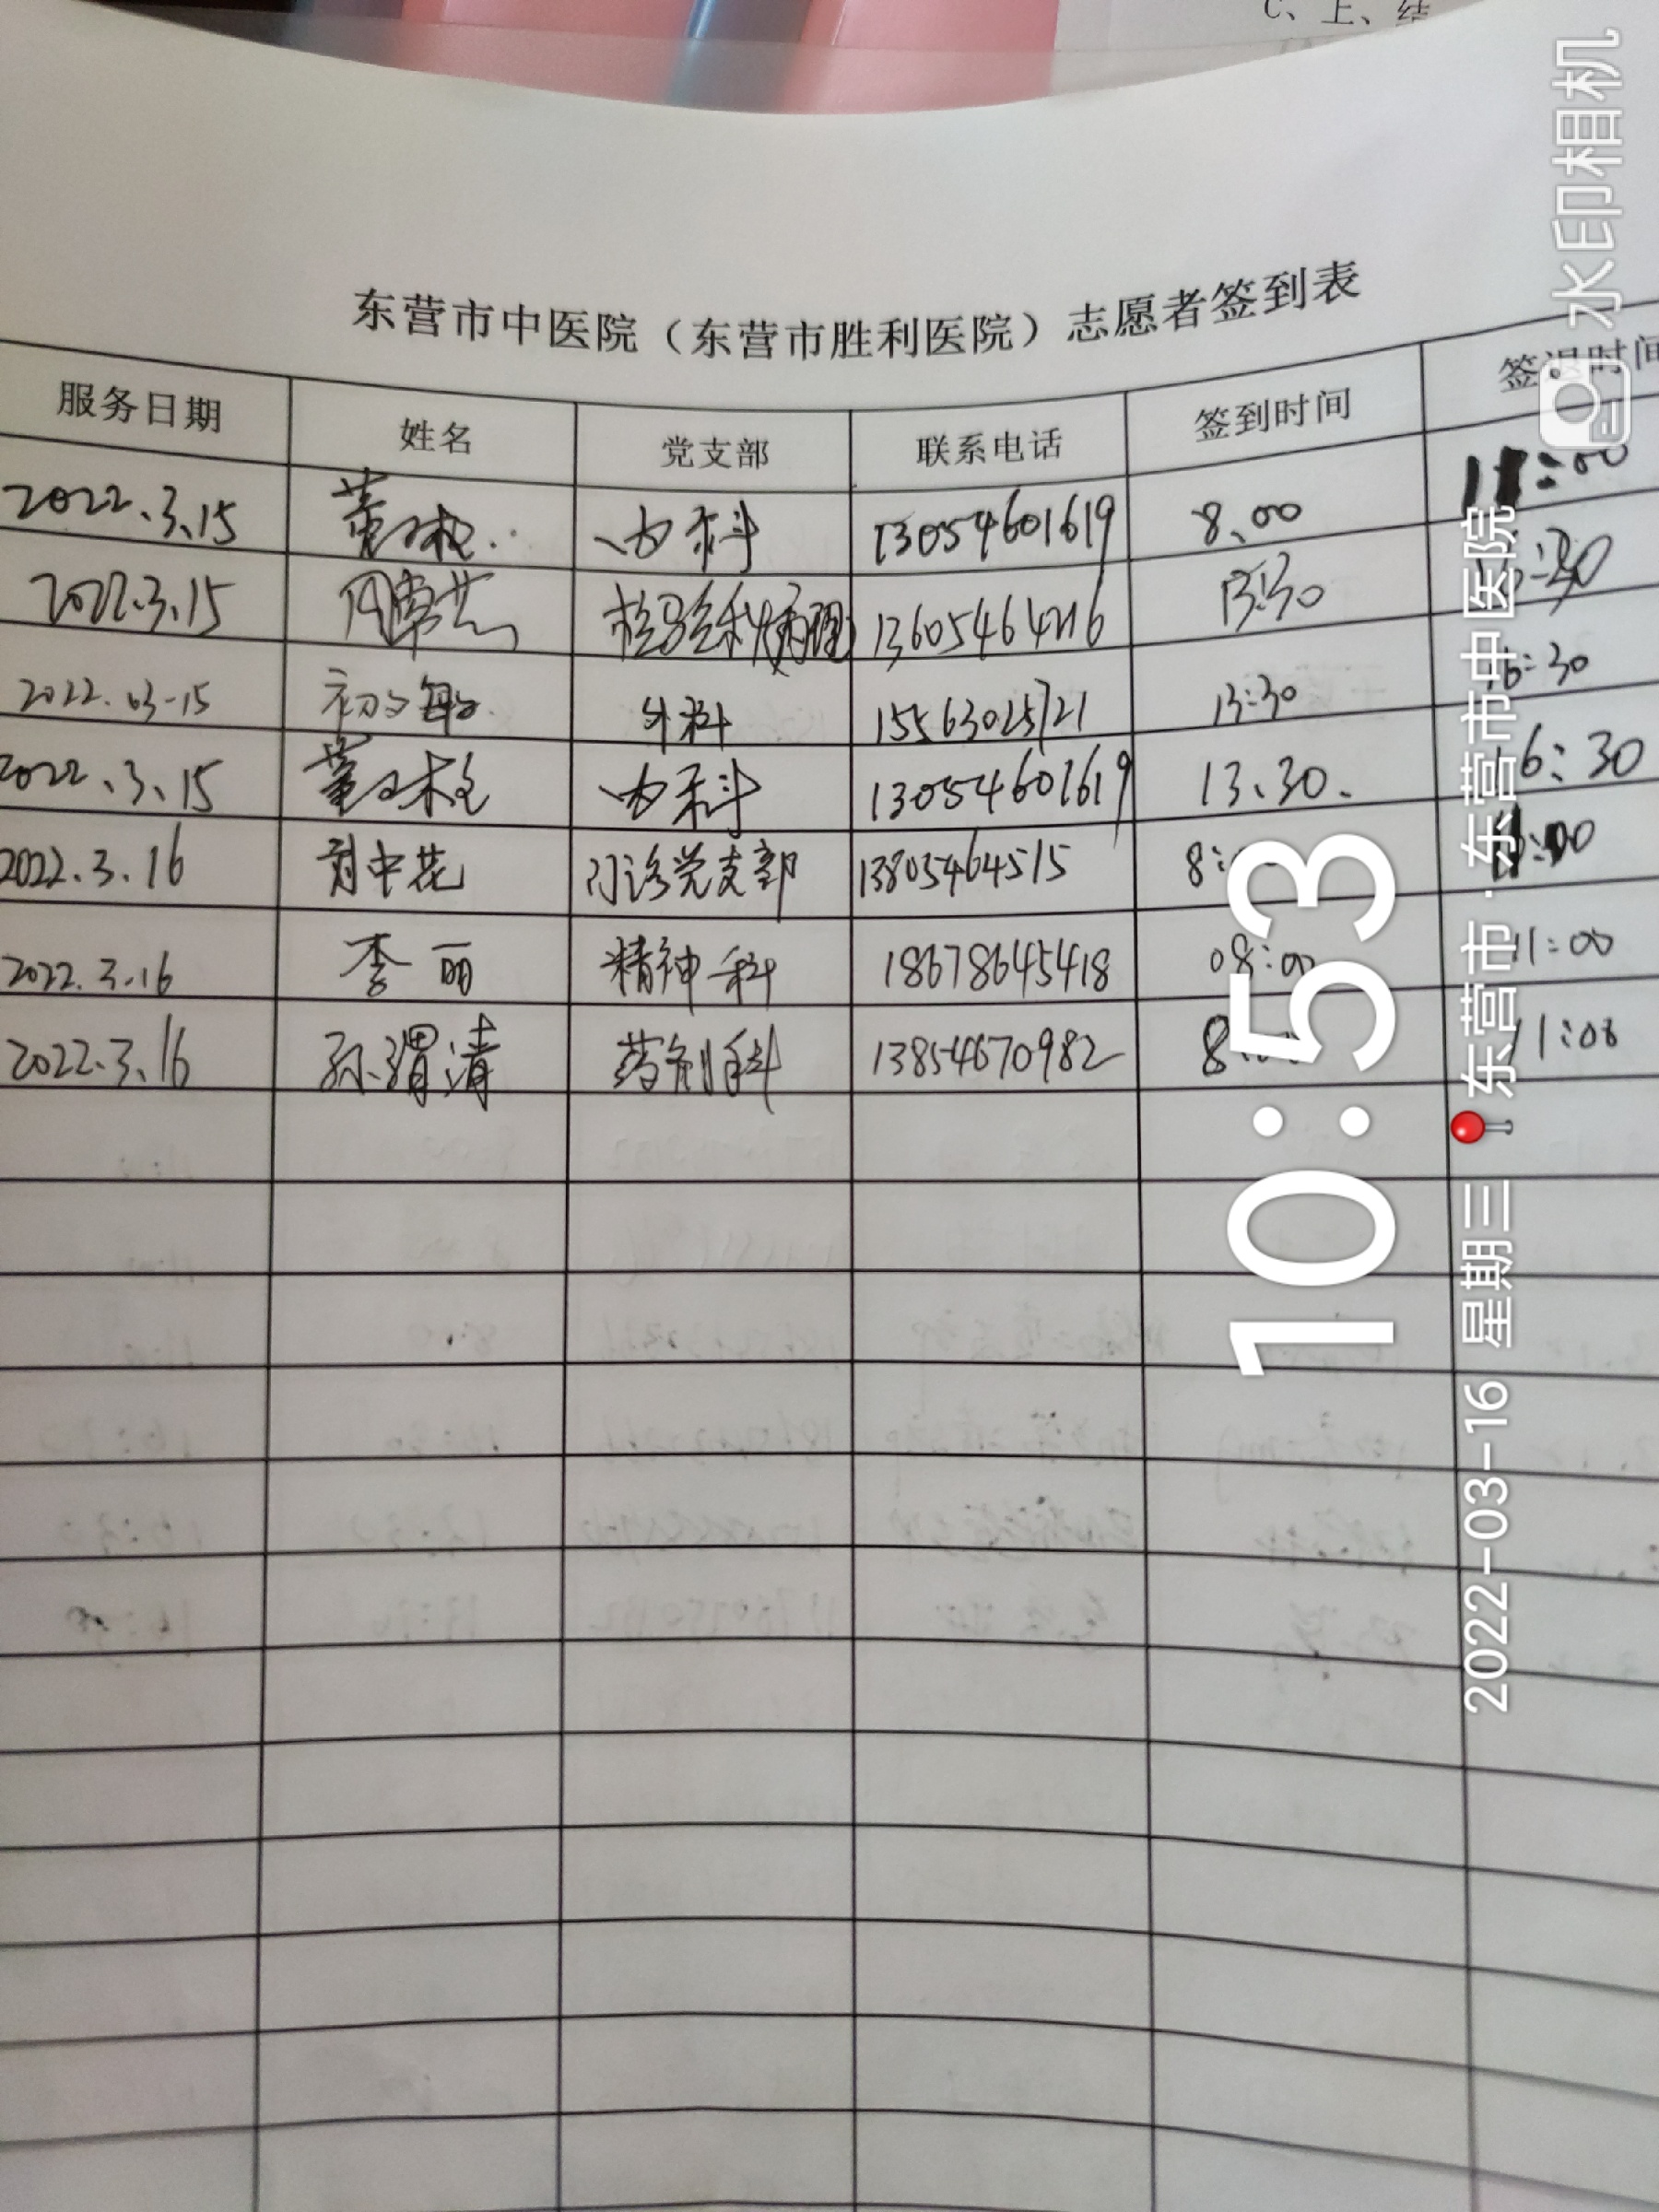 C、上、结
东营市中医院（东营市胜利医院）志愿者签到表
服务日期 姓名 党支部 联系电话 签到时间 签退时间
2022.3.15 内科 13054601619 8.00
2022.3.15 检验科病理 13605464216 13:30
2022.03-15 初文敏 外科 15563025721 13:30 16:30
2022.3.15 内科 13054601619 13.30. 16:30
2022.3.16 门诊党支部 13805464515
2022.3.16 李丽 精神科 18678645418 08:00 11:00
2022.3.16 孙渭清 药剂科 13854670982 11:00
10:53
2022-03-16 星期三 东营市·东营市中医院
水印相机